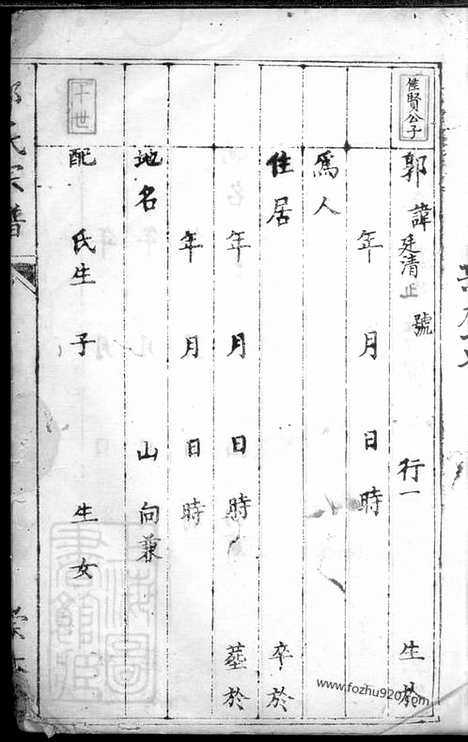 佳賢公子
郭 諱廷清 號 行一 生於
年 月 日 時
爲人
住居 卒於
年 月 日 時 墓於
年 月 日 時
地名 山 向兼
十世
配 氏生 子 生女
氏宗譜
www.fozhu920.com